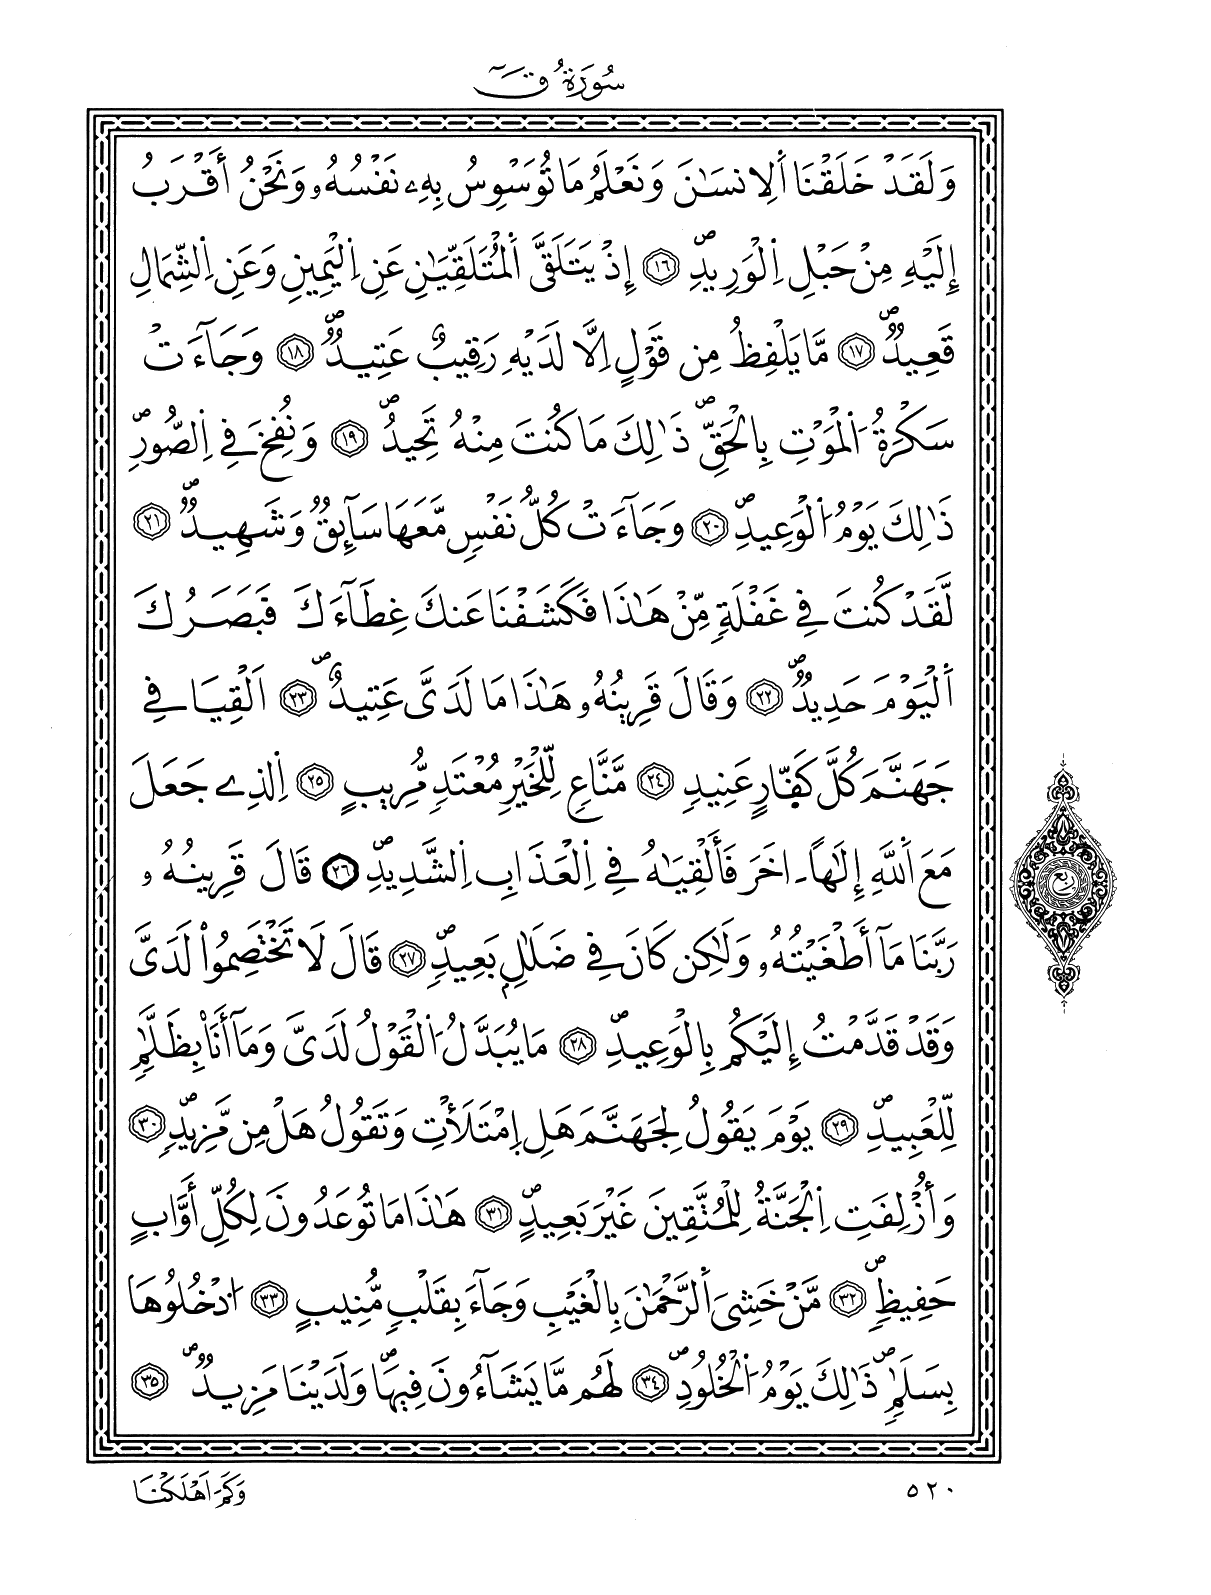 سُورَةُ قٓ
وَلَقَدْ خَلَقْنَا اَ۬لِانسَٰنَ وَنَعْلَمُ مَا تُوَسْوِسُ بِهِۦ نَفْسُهُۥ وَنَحْنُ أَقْرَبُ
إِلَيْهِ مِنْ حَبْلِ اِ۬لْوَرِيدِۖ ١٦ إِذْ يَتَلَقَّى اَ۬لْمُتَلَقِّيَٰنِ عَنِ اِ۬لْيَمِينِ وَعَنِ اِ۬لشِّمَالِ
قَعِيدٞۖ ١٧ مَّا يَلْفِظُ مِن قَوْلٍ اِلَّا لَدَيْهِ رَقِيبٌ عَتِيدٞۖ ١٨ وَجَآءَتْ
سَكْرَةُ اُ۬لْمَوْتِ بِالْحَقِّۖ ذَٰلِكَ مَا كُنتَ مِنْهُ تَحِيدُۖ ١٩ وَنُفِخَ فِے اِ۬لصُّورِۖ
ذَٰلِكَ يَوْمُ اُ۬لْوَعِيدِۖ ٢٠ وَجَآءَتْ كُلُّ نَفْسٖ مَّعَهَا سَآئِقٞ وَشَهِيدٞۖ ٢١
لَّقَدْ كُنتَ فِے غَفْلَةٖ مِّنْ هَٰذَا فَكَشَفْنَا عَنكَ غِطَآءَكَ فَبَصَرُكَ
اَ۬لْيَوْمَ حَدِيدٞۖ ٢٢ وَقَالَ قَرِينُهُۥ هَٰذَا مَا لَدَيَّ عَتِيدٌۖ ٢٣ اَلْقِيَا فِے
جَهَنَّمَ كُلَّ كَفّ۪ارٍ عَنِيدٖ ٢٤ مَّنَّاعٖ لِّلْخَيْرِ مُعْتَدٖ مُّرِيبٍ ٢٥ اِ۬لذِے جَعَلَ
مَعَ اَ۬للَّهِ إِلَٰهاً اٰخَرَ فَأَلْقِيَٰهُ فِے اِ۬لْعَذَابِ اِ۬لشَّدِيدِۖ ٢٦ قَالَ قَرِينُهُۥ
رَبَّنَا مَآ أَطْغَيْتُهُۥ وَلَٰكِن كَانَ فِے ضَلَٰلِۢ بَعِيدٖۖ ٢٧ قَالَ لَا تَخْتَصِمُواْ لَدَيَّ
وَقَدْ قَدَّمْتُ إِلَيْكُم بِالْوَعِيدِۖ ٢٨ مَا يُبَدَّلُ اُ۬لْقَوْلُ لَدَيَّ وَمَآ أَنَا۠ بِظَلَّٰمٖ
لِّلْعَبِيدِۖ ٢٩ يَوْمَ يَقُولُ لِجَهَنَّمَ هَلِ اِ۪مْتَلَأْتِ وَتَقُولُ هَلْ مِن مَّزِيدٖۖ ٣٠
وَأُزْلِفَتِ اِ۬لْجَنَّةُ لِلْمُتَّقِينَ غَيْرَ بَعِيدٍۖ ٣١ هَٰذَا مَا تُوعَدُونَ لِكُلِّ أَوَّابٍ
حَفِيظٖۖ ٣٢ مَّنْ خَشِيَ اَ۬لرَّحْمَٰنَ بِالْغَيْبِ وَجَآءَ بِقَلْبٖ مُّنِيبٍ ٣٣ اُ۟دْخُلُوهَا
بِسَلَٰمٖۖ ذَٰلِكَ يَوْمُ اُ۬لْخُلُودِۖ ٣٤ لَهُم مَّا يَشَآءُونَ فِيهَاۖ وَلَدَيْنَا مَزِيدٞۖ ٣٥
ربع
٥٢٠
وَكَمَ اَهْلَكْنَا